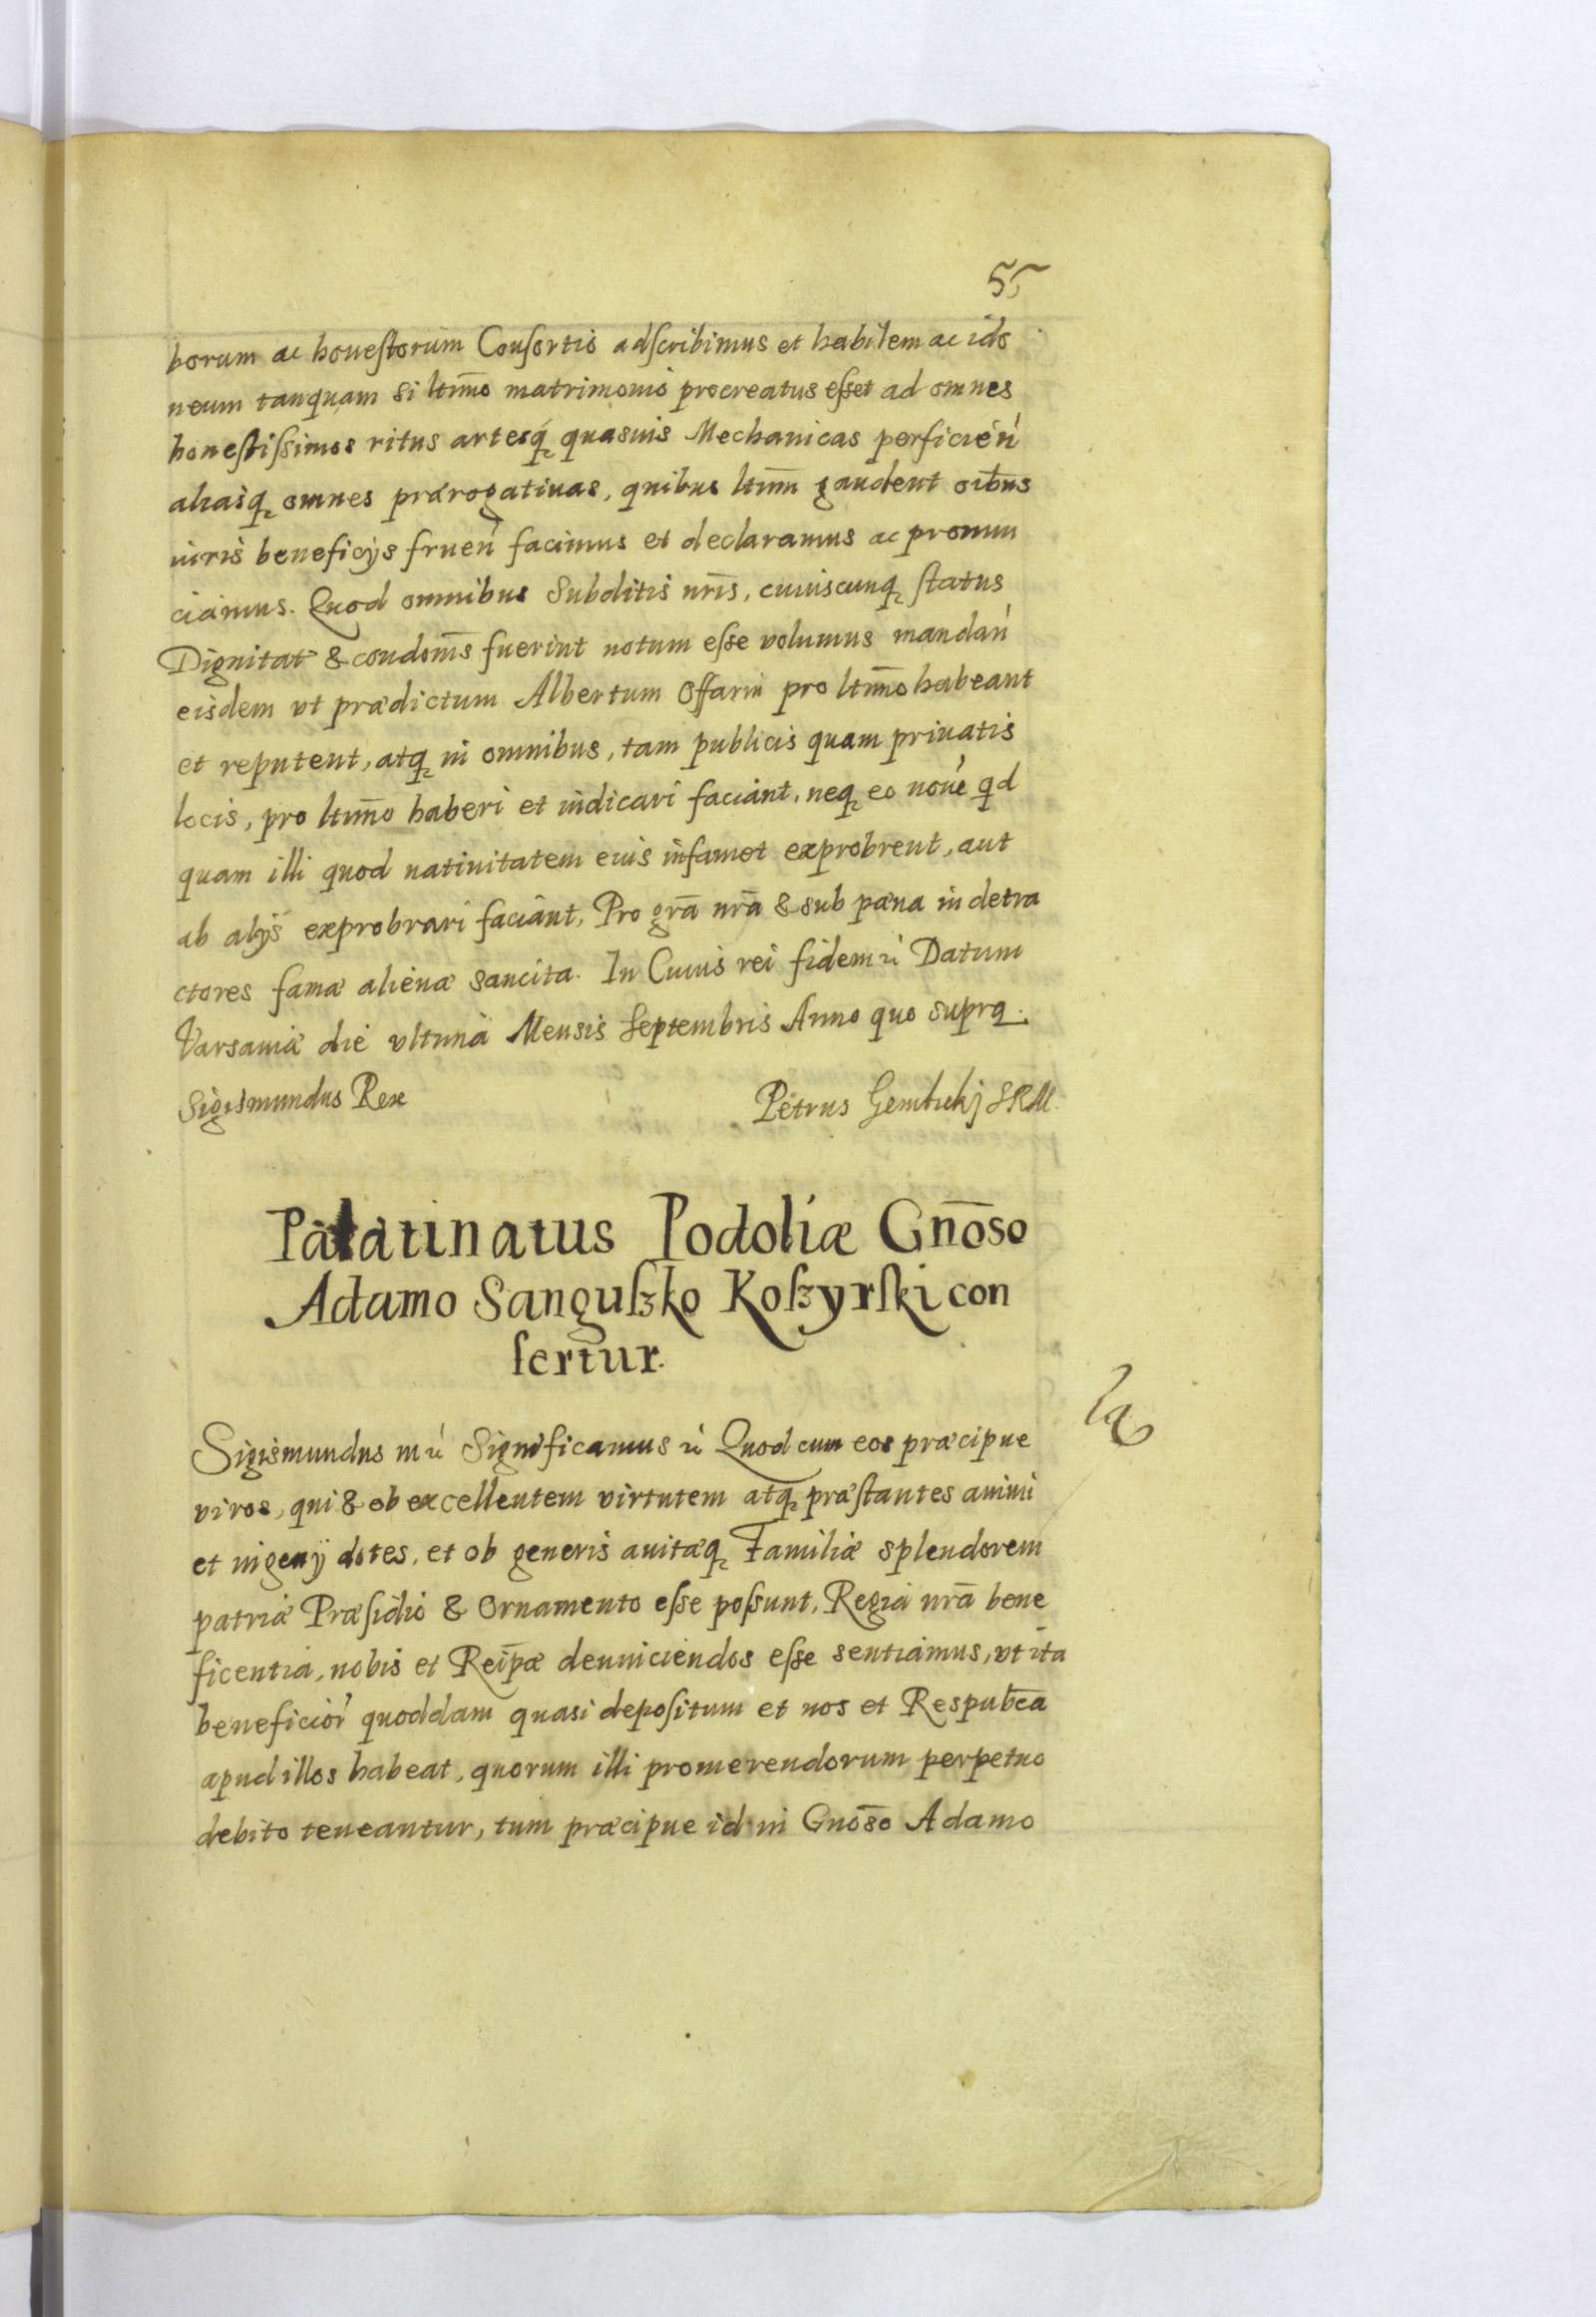 55
borum ac honestorum Consortio adscribimus et habilem ac ido
neum tanquam si ltimo matrimonio procreatus esset ad omnes
honestissimos ritus artesq quasuis Mechanicas perficien
aliasq omnes prærogatiuas, quibus ltim gaudent oibus
iuris beneficijs fruen facimus et declaramus ac pronun
ciamus. Quod omnibus Subditis nris, cuiuscunq status
Dignitat & condonis fuerint notum esse volumus mandan
eisdem vt prædictum Albertum Offarin pro ltimo habeant
et reputent, atq in omnibus, tam publicis quam priuatis
locis, pro ltimo haberi et iudicari faciant, neq eo noīe qd
quam illi quod natiuitatem eius infamet exprobrent, aut
ab alijs exprobrari faciant, Pro gra nra & sub pæna in detra
ctores famæ alienæ sancita. In Cuius rei fidem ỉ Datum
Varsauiæ die vltima Mensis Septembris Anno quo supra.
Sigismundus Rex
Petrus Gembickj SRM.
Palatinatus Podoliæ Gnōso
Adamo Sanguszko Koszyrski con
fertur.
Sigismundus III ỉ Significamus ỉ Quod cum eos præcipue
viros, qui & ob excellentem virtutem atq præstantes animi
et ingenij dotes, et ob generis auitæq Familiæ splendorem
patriæ Præsidio & Ornamento esse possunt, Regia nrā bene
ficentia, nobis et Reipæ deuinciendos esse sentiamus, vt ita
beneficior quoddam quasi depositum et nos et Respubca
apud illos habeat, quorum illi promerendorum perpetuo
debito teneantur, tum præcipue id in Gnōso Adamo